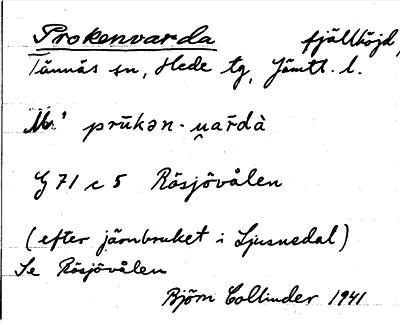 Prokenvarda fjällhöjd,
Tännäs sn, Hede tg, Jämtl. l.
prūkən-u̯ārdà
G 71 c 5 Rösjövålen
(efter järnbruket i Ljusnedal)
Se Rösjövålen
Björn Collinder 1941